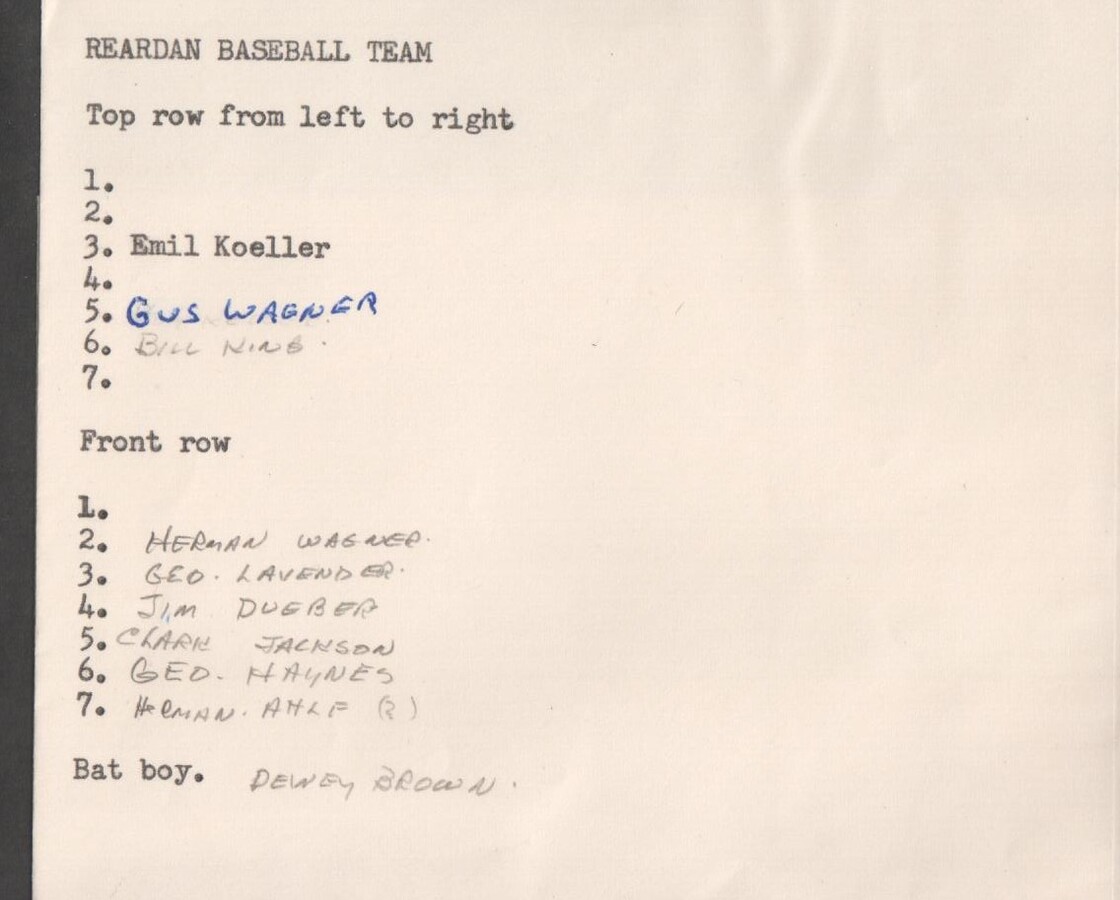 REARDAN BASEBALL TEAM
Top row from left to right
1.
2.
3. Emil Koeller
4.
5. GUS WAGNER
6. BILL KING.
7.
Front row
1.
2. HERMAN WAGNER.
3. GEO. LAVENDER.
4. JIM DUEBER
5. CLARK JACKSON
6. GEO. HAYNES
7. HERMAN. AHLF (?)
Bat boy. DEWEY BROWN.